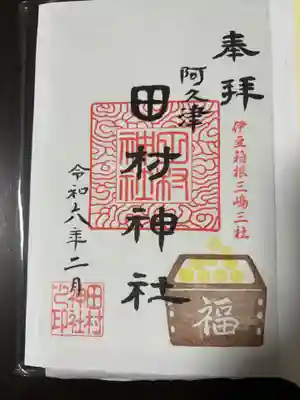 奉拝
伊豆箱根三嶋三社
阿久津
田村神社
令和六年二月
福
田村
神社
之印